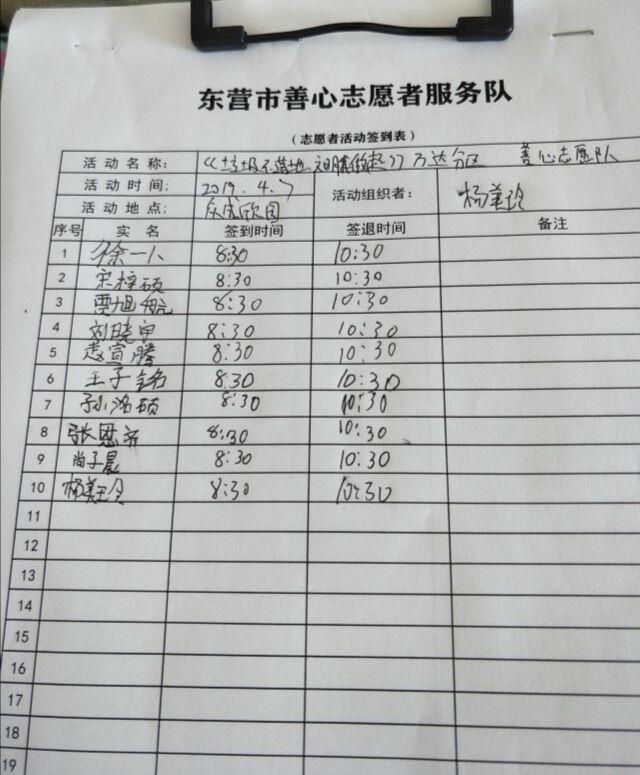 东营市善心志愿者服务队
（志愿者活动签到表）
活动名称： 《垃圾不落地，文明 》万达分区 善心志愿队
活动时间： 2019.4.7 活动组织者： 杨美玲
活动地点： 欣园
序号 实名 签到时间 签退时间 备注
1 徐一人 8:30 10:30
2 宋梓硕 8:30 10:30
3 贾旭航 8:30 10:30
4 刘晓甲 8:30 10:30
5 宣腾 8:30 10:30
6 王子铭 8:30 10:30
7 孙浩硕 8:30 10:30
8 张恩 8:30 10:30
9 尚子晨 8:30 10:30
10 杨美玲 8:30 10:30
11
12
13
14
15
16
17
18
19